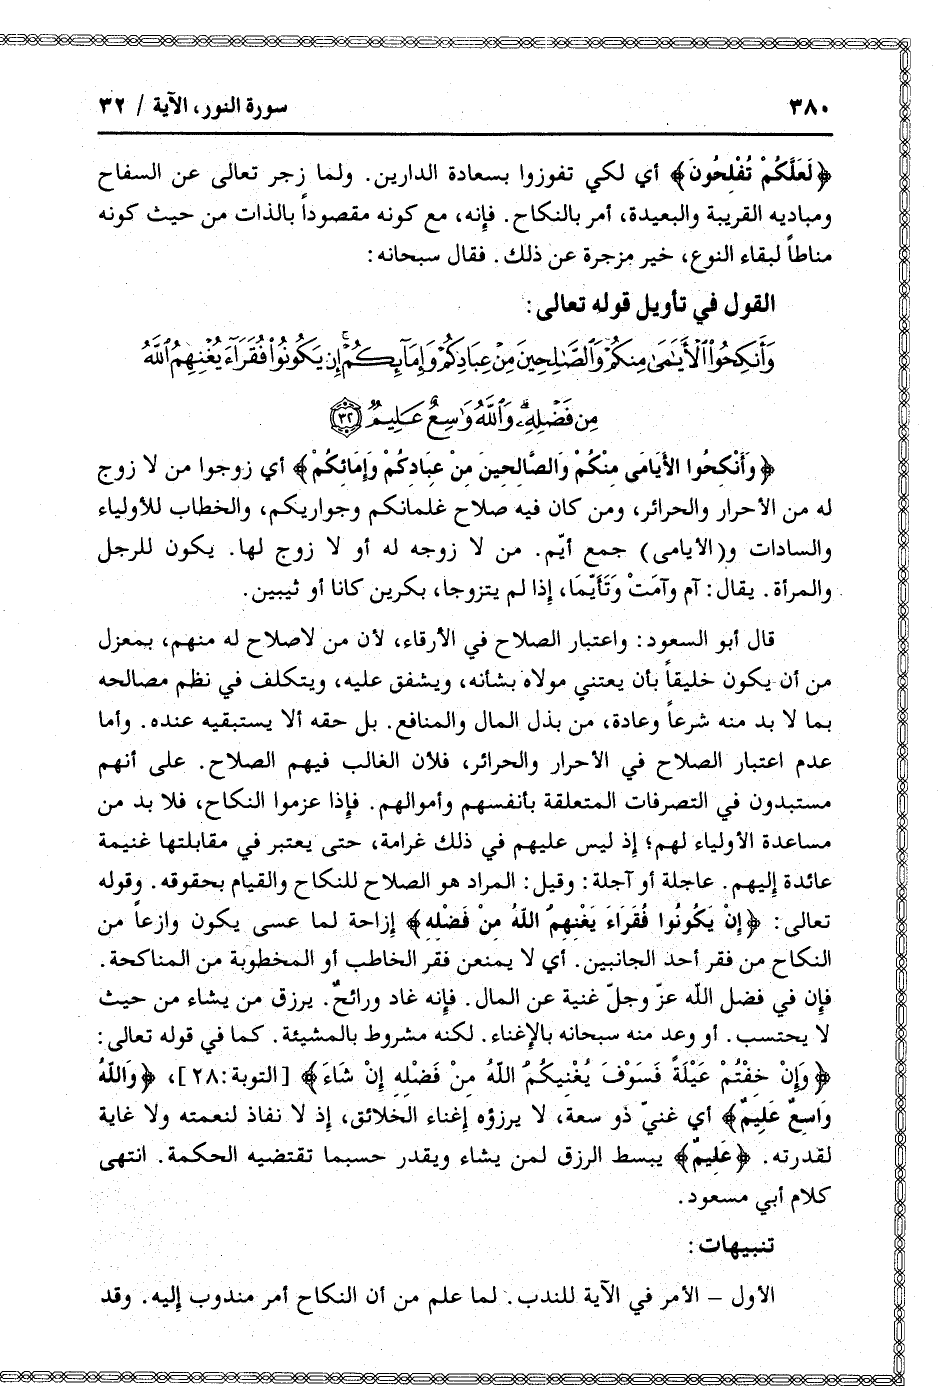 ٣٨٠ سورة النور، الآية / ٣٢
﴿لَعَلَّكُمْ تُفْلِحُونَ﴾ أي لكي تفوزوا بسعادة الدارين. ولما زجر تعالى عن السفاح
ومباديه القريبة والبعيدة، أمر بالنكاح. فإنه، مع كونه مقصوداً بالذات من حيث كونه
مناطاً لبقاء النوع، خير مزجرة عن ذلك. فقال سبحانه:
القول في تأويل قوله تعالى:
وَأَنكِحُوا۟ ٱلْأَيَـٰمَىٰ مِنكُمْ وَٱلصَّـٰلِحِينَ مِنْ عِبَادِكُمْ وَإِمَآئِكُمْ ۚ إِن يَكُونُوا۟ فُقَرَآءَ يُغْنِهِمُ ٱللَّهُ
مِن فَضْلِهِۦ ۗ وَٱللَّهُ وَٰسِعٌ عَلِيمٌ ٣٢
﴿وَأَنْكِحُوا الأَيَامَى مِنْكُمْ وَالصَّالِحِينَ مِنْ عِبَادِكُمْ وَإِمَائِكُمْ﴾ أي زوجوا من لا زوج
له من الأحرار والحرائر، ومن كان فيه صلاح غلمانكم وجواريكم، والخطاب للأولياء
والسادات و(الأيامى) جمع أيّم. من لا زوجه له أو لا زوج لها. يكون للرجل
والمرأة. يقال: آم وآمَتْ وَتَأَيَّمَا، إذا لم يتزوجا، بكرين كانا أو ثيبين.
قال أبو السعود: واعتبار الصلاح في الأرقاء، لأن من لاصلاح له منهم، بمعزل
من أن يكون خليقاً بأن يعتني مولاه بشأنه، ويشفق عليه، ويتكلف في نظم مصالحه
بما لا بد منه شرعاً وعادة، من بذل المال والمنافع. بل حقه ألا يستبقيه عنده. وأما
عدم اعتبار الصلاح في الأحرار والحرائر، فلأن الغالب فيهم الصلاح. على أنهم
مستبدون في التصرفات المتعلقة بأنفسهم وأموالهم. فإذا عزموا النكاح، فلا بد من
مساعدة الأولياء لهم؛ إذ ليس عليهم في ذلك غرامة، حتى يعتبر في مقابلتها غنيمة
عائدة إليهم. عاجلة أو آجلة: وقيل: المراد هو الصلاح للنكاح والقيام بحقوقه. وقوله
تعالى: ﴿إِنْ يَكُونُوا فُقَرَاءَ يَغْنِهِمُ اللَّهُ مِنْ فَضْلِهِ﴾ إزاحة لما عسى يكون وازعاً من
النكاح من فقر أحد الجانبين. أي لا يمنعن فقر الخاطب أو المخطوبة من المناكحة.
فإن في فضل اللّه عزّ وجلّ غنية عن المال. فإنه غاد ورائحٌ. يرزق من يشاء من حيث
لا يحتسب. أو وعد منه سبحانه بالإغناء. لكنه مشروط بالمشيئة. كما في قوله تعالى:
﴿وَإِنْ خِفْتُمْ عَيْلَةً فَسَوْفَ يُغْنِيكُمُ اللَّهُ مِنْ فَضْلِهِ إِنْ شَاءَ﴾ [التوبة:٢٨]، ﴿وَاللَّهُ
وَاسِعٌ عَلِيمٌ﴾ أي غنيّ ذو سعة، لا يرزؤه إغناء الخلائق، إذ لا نفاذ لنعمته ولا غاية
لقدرته. ﴿عَلِيمٌ﴾ يبسط الرزق لمن يشاء ويقدر حسبما تقتضيه الحكمة. انتهى
كلام أبي مسعود.
تنبيهات:
الأول – الأمر في الآية للندب. لما علم من أن النكاح أمر مندوب إليه. وقد